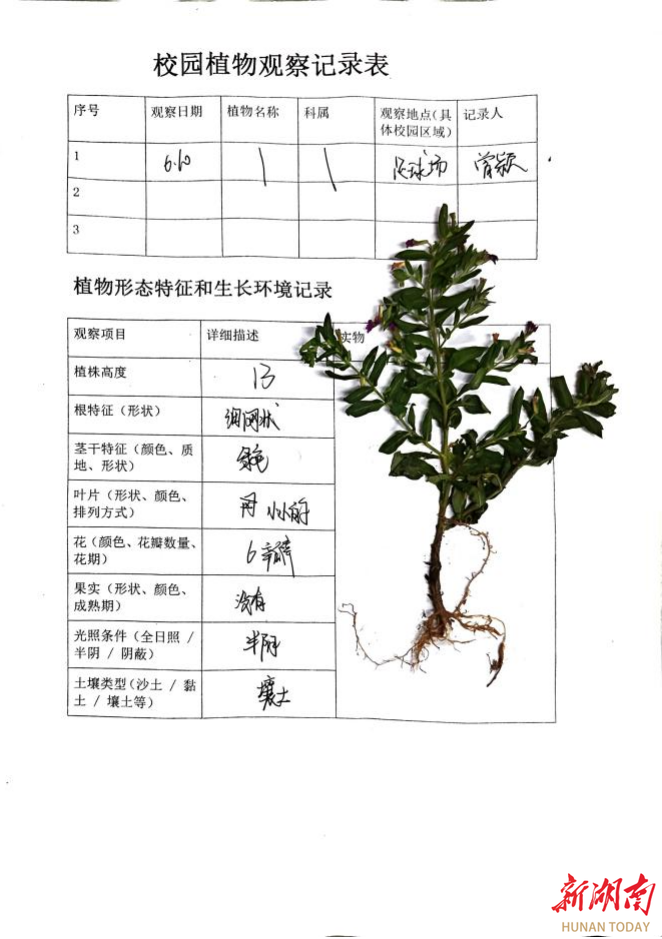 校园植物观察记录表
序号 观察日期 植物名称 科属 观察地点(具 记录人
体校园区域)
1 6.10 \ \ 足球场 曾颖
2
3
植物形态特征和生长环境记录
观察项目 详细描述 实物
植株高度 13
根特征（形状） 细网状
茎干特征（颜色、质
地、形状） 绿色
叶片（形状、颜色、
排列方式） 小小的
花（颜色、花瓣数量、
花期） 6
果实（形状、颜色、
成熟期） 没有
光照条件（全日照 /
半阴 / 阴蔽） 半阴
土壤类型(沙土 / 黏
土 / 壤土等) 壤土
新湖南
HUNAN TODAY